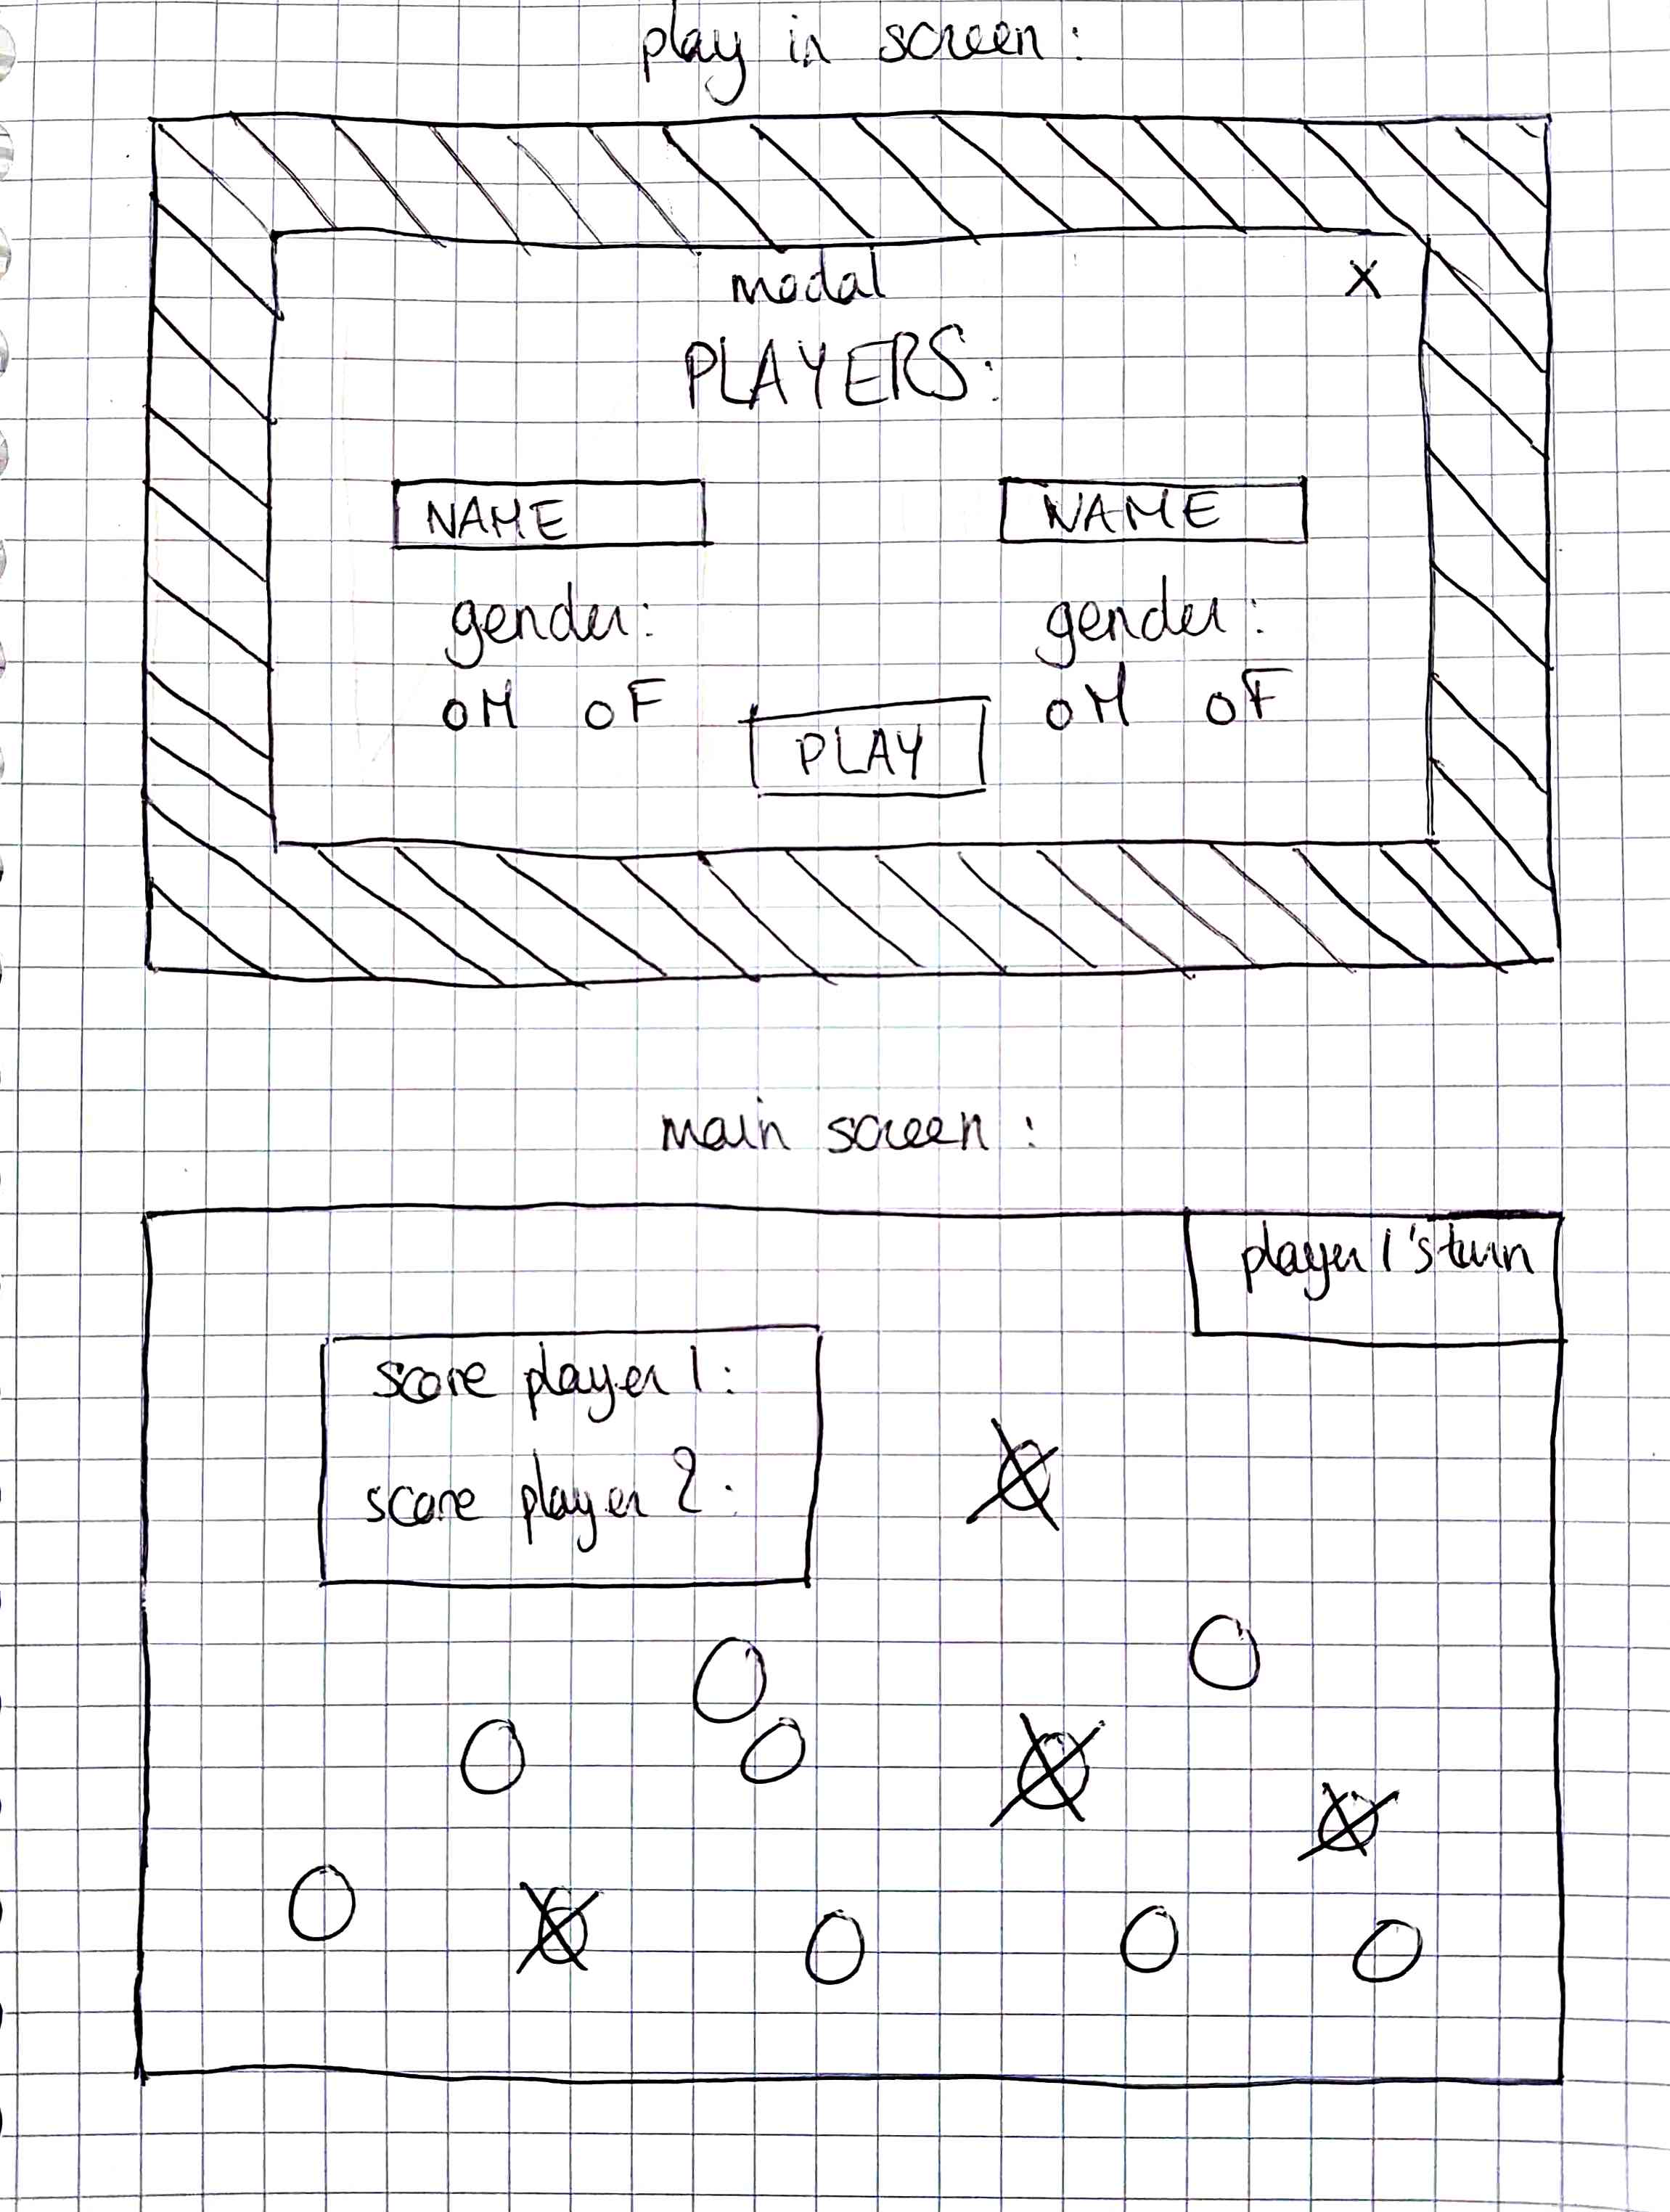 play in screen:
modal X
PLAYERS:
NAME NAME
gender: gender:
o M o F o M o F
PLAY
main screen:
player 1's turn
score player 1:
score player 2: